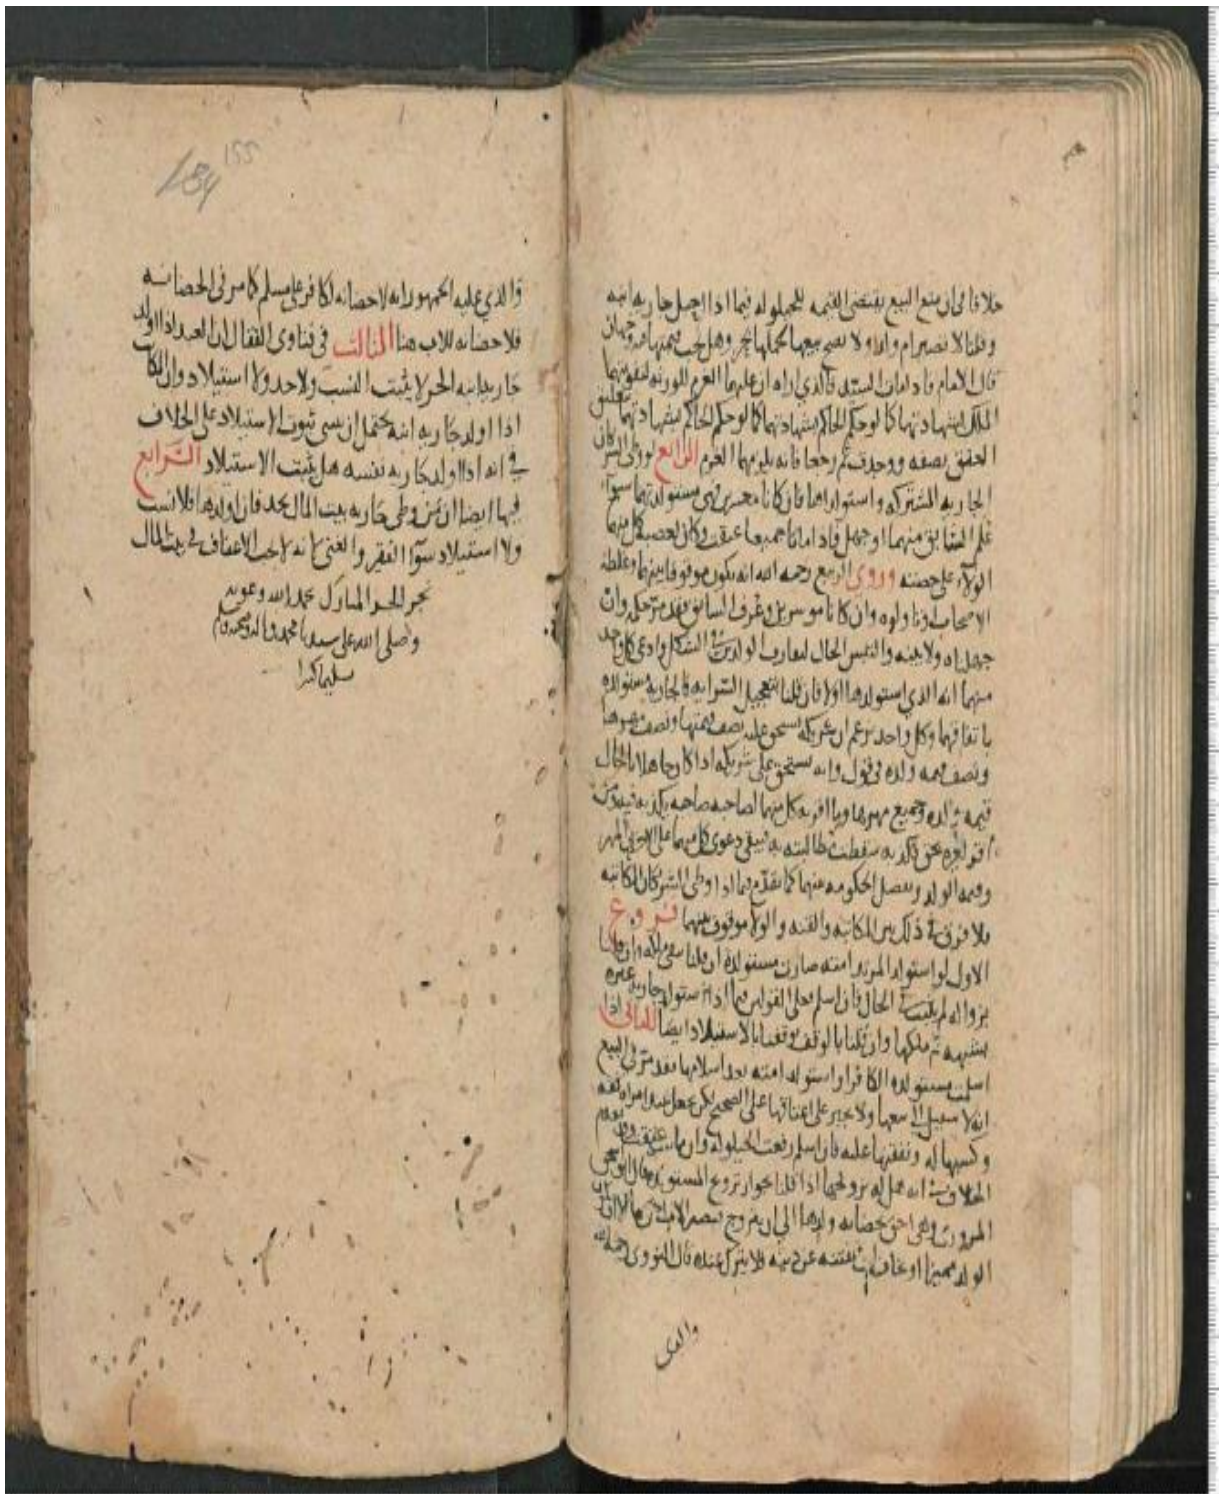 خلافا في ان منع البيع يقتضي القيمه للحيلوله فيما اذا احبل جاريه ابنه
وقلنا لا تصير ام ولد ولا يصح بيعها لحملها بحر وهل تجب قيمتها فيه وجهان
قال الامام فاذا مات السيد فالذي اراه ان عليهما الغرم للورثه لتفويتهما
الملك بشهادتهما كما لو حكم الحاكم بشهادتهما بتعليق
العتق بصفه ووجدت ثم رجعا فانه يلزمهما الغرم الرابع لو وطئ الشريكان
الجاريه المشتركه واستولداها فان كانا معسرين فهي مستولدتهما سوآء
علم السابق منهما او جهل فاذا ماتا جميعا عتقت وكان لعصبه كل منهما
الولآء على حصته وروى الربيع رحمه الله انه يكون موقوفا بينهما وغلطه
الاصحاب او تاولوه وان كانا موسرين وعرف السابق فقد مر حكمه وان
جهلناه ولا بينه والتبس الحال لتقارب الولدين في الشكل وادعى كل واحد
منهما انه الذي استولدها اولا فان قلنا بتعجيل السرايه فالجاريه مستولده
باتفاقهما وكل واحد يزعم ان شريكه استحق عليه نصف قيمتها ونصف مهرها
ونصف قيمه ولده في قول وانه يستحق على شريكه اذا كان جاهلا بالحال
قيمه ولده وجميع مهرها وما اقر به كل منهما لصاحبه صاحبه يكذبه فيه ومن
اقر لغيره بحق فكذبه سقطت مطالبته به فيبقى دعوى كل منهما على الاخر في المهر
وقيمه الولد وتفصل الحكومه بينهما كما تقدم فيما اذا وطئ الشريكان المكاتبه
فلا فرق في ذلك بين المكاتبه والقنه والولآ موقوف بينهما فروع
الاول لو استولد المرتد امته صارت مستولدة ان قلنا ببقي ملكه وان قلنا
بزواله لم يثبت في الحال فان اسلم فعلى القولين فيما اذا استولد جاريه غيره
بشبهه ثم ملكها وان قلنا بالوقف توقفنا بالاستيلاد ايضا الثاني اذا
اسلمت مستولده الكافر او استولد امته بعد اسلامها فقد مر في البيع
انه لا سبيل الى بيعها ولا يجبر على اعتاقها على الصحيح لكن تجعل عند امراه ثقه
وكسبها له ونفقتها عليه فان اسلم رفعت الحيلوله وان مات عتقت وقد تقدم
الخلاف في انه هل له تزويجها اذا قلنا بجواز تزويج المستولده قال ابو اسحق
المروزي وهي احق بحضانه ولدها الى ان تتزوج فيصير الاب احق بها الا ان يكون
الولد مميزا او خاف ان يفتنه عن دينه فلا يترك عنده قال النووي رحمه الله
والذي
155
184
والذي عليه الجمهور انه لا حضانه لكافر على مسلم كما مر في الحضانه
فلا حضانه للاب هنا الثالث في فتاوى القفال ان العبد اذا اولد
جاريه ابنه الحر لا يثبت النسب ولا حد ولا استيلاد وان المكاتب
اذا اولد جاريه ابنه يحتمل ان يبنى ثبوت الاستيلاد على الخلاف
في انه اذا اولد جاريه نفسه هل يثبت الاستيلاد الرابع
فيها ايضا ان من وطئ جاريه بيت المال يحد فان اولدها فلا نسب
ولا استيلاد سوآ الفقير والغني لانه لا يجب الاعفاف في بيت المال
نجز الجزء المبارك بحمد الله وعونه
وصلى الله على سيدنا محمد واله وصحبه وسلم
تسليما كثيرا